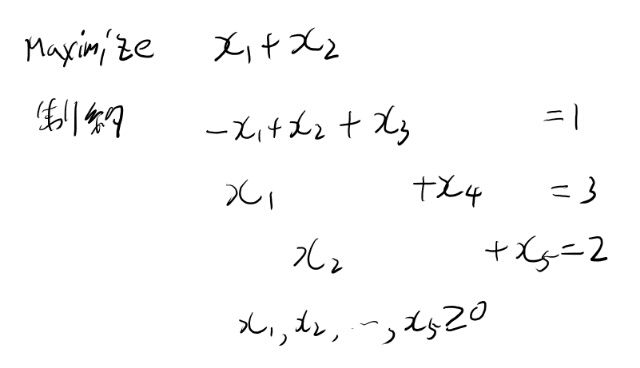 Maximize x₁+x₂
制約 -x₁+x₂+x₃ =1
x₁ +x₄ =3
x₂ +x₅=2
x₁,x₂,…,x₅≥0